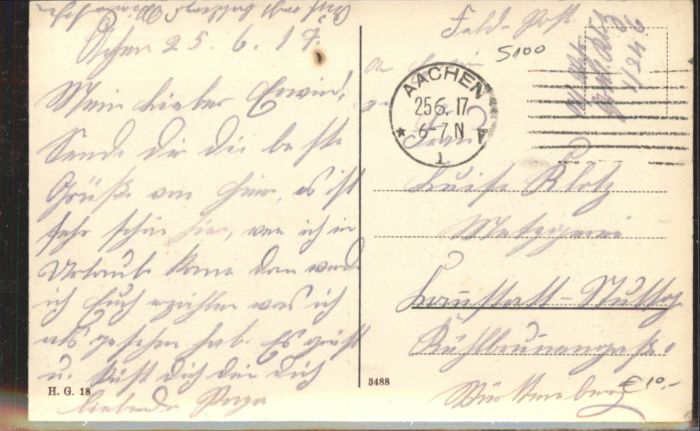 Achen 25.6.17.
Mein Lieber Erwin!
Sende dir die beste
Grüße von hier, es ist
sehr schön hier, wen ich in
Urlaub kome dan werde
ich Euch erzählen was ich
als gesehen hab. Es grüßt
u. küßt dich der dich
liebende Papa
H. G. 18
3488
Feld-Post
5100
AACHEN
25.6.17
6-7 N
1
Luise Klotz
Metzgerei
Cannstatt-Stuttg
Württemberg
€ 10,-